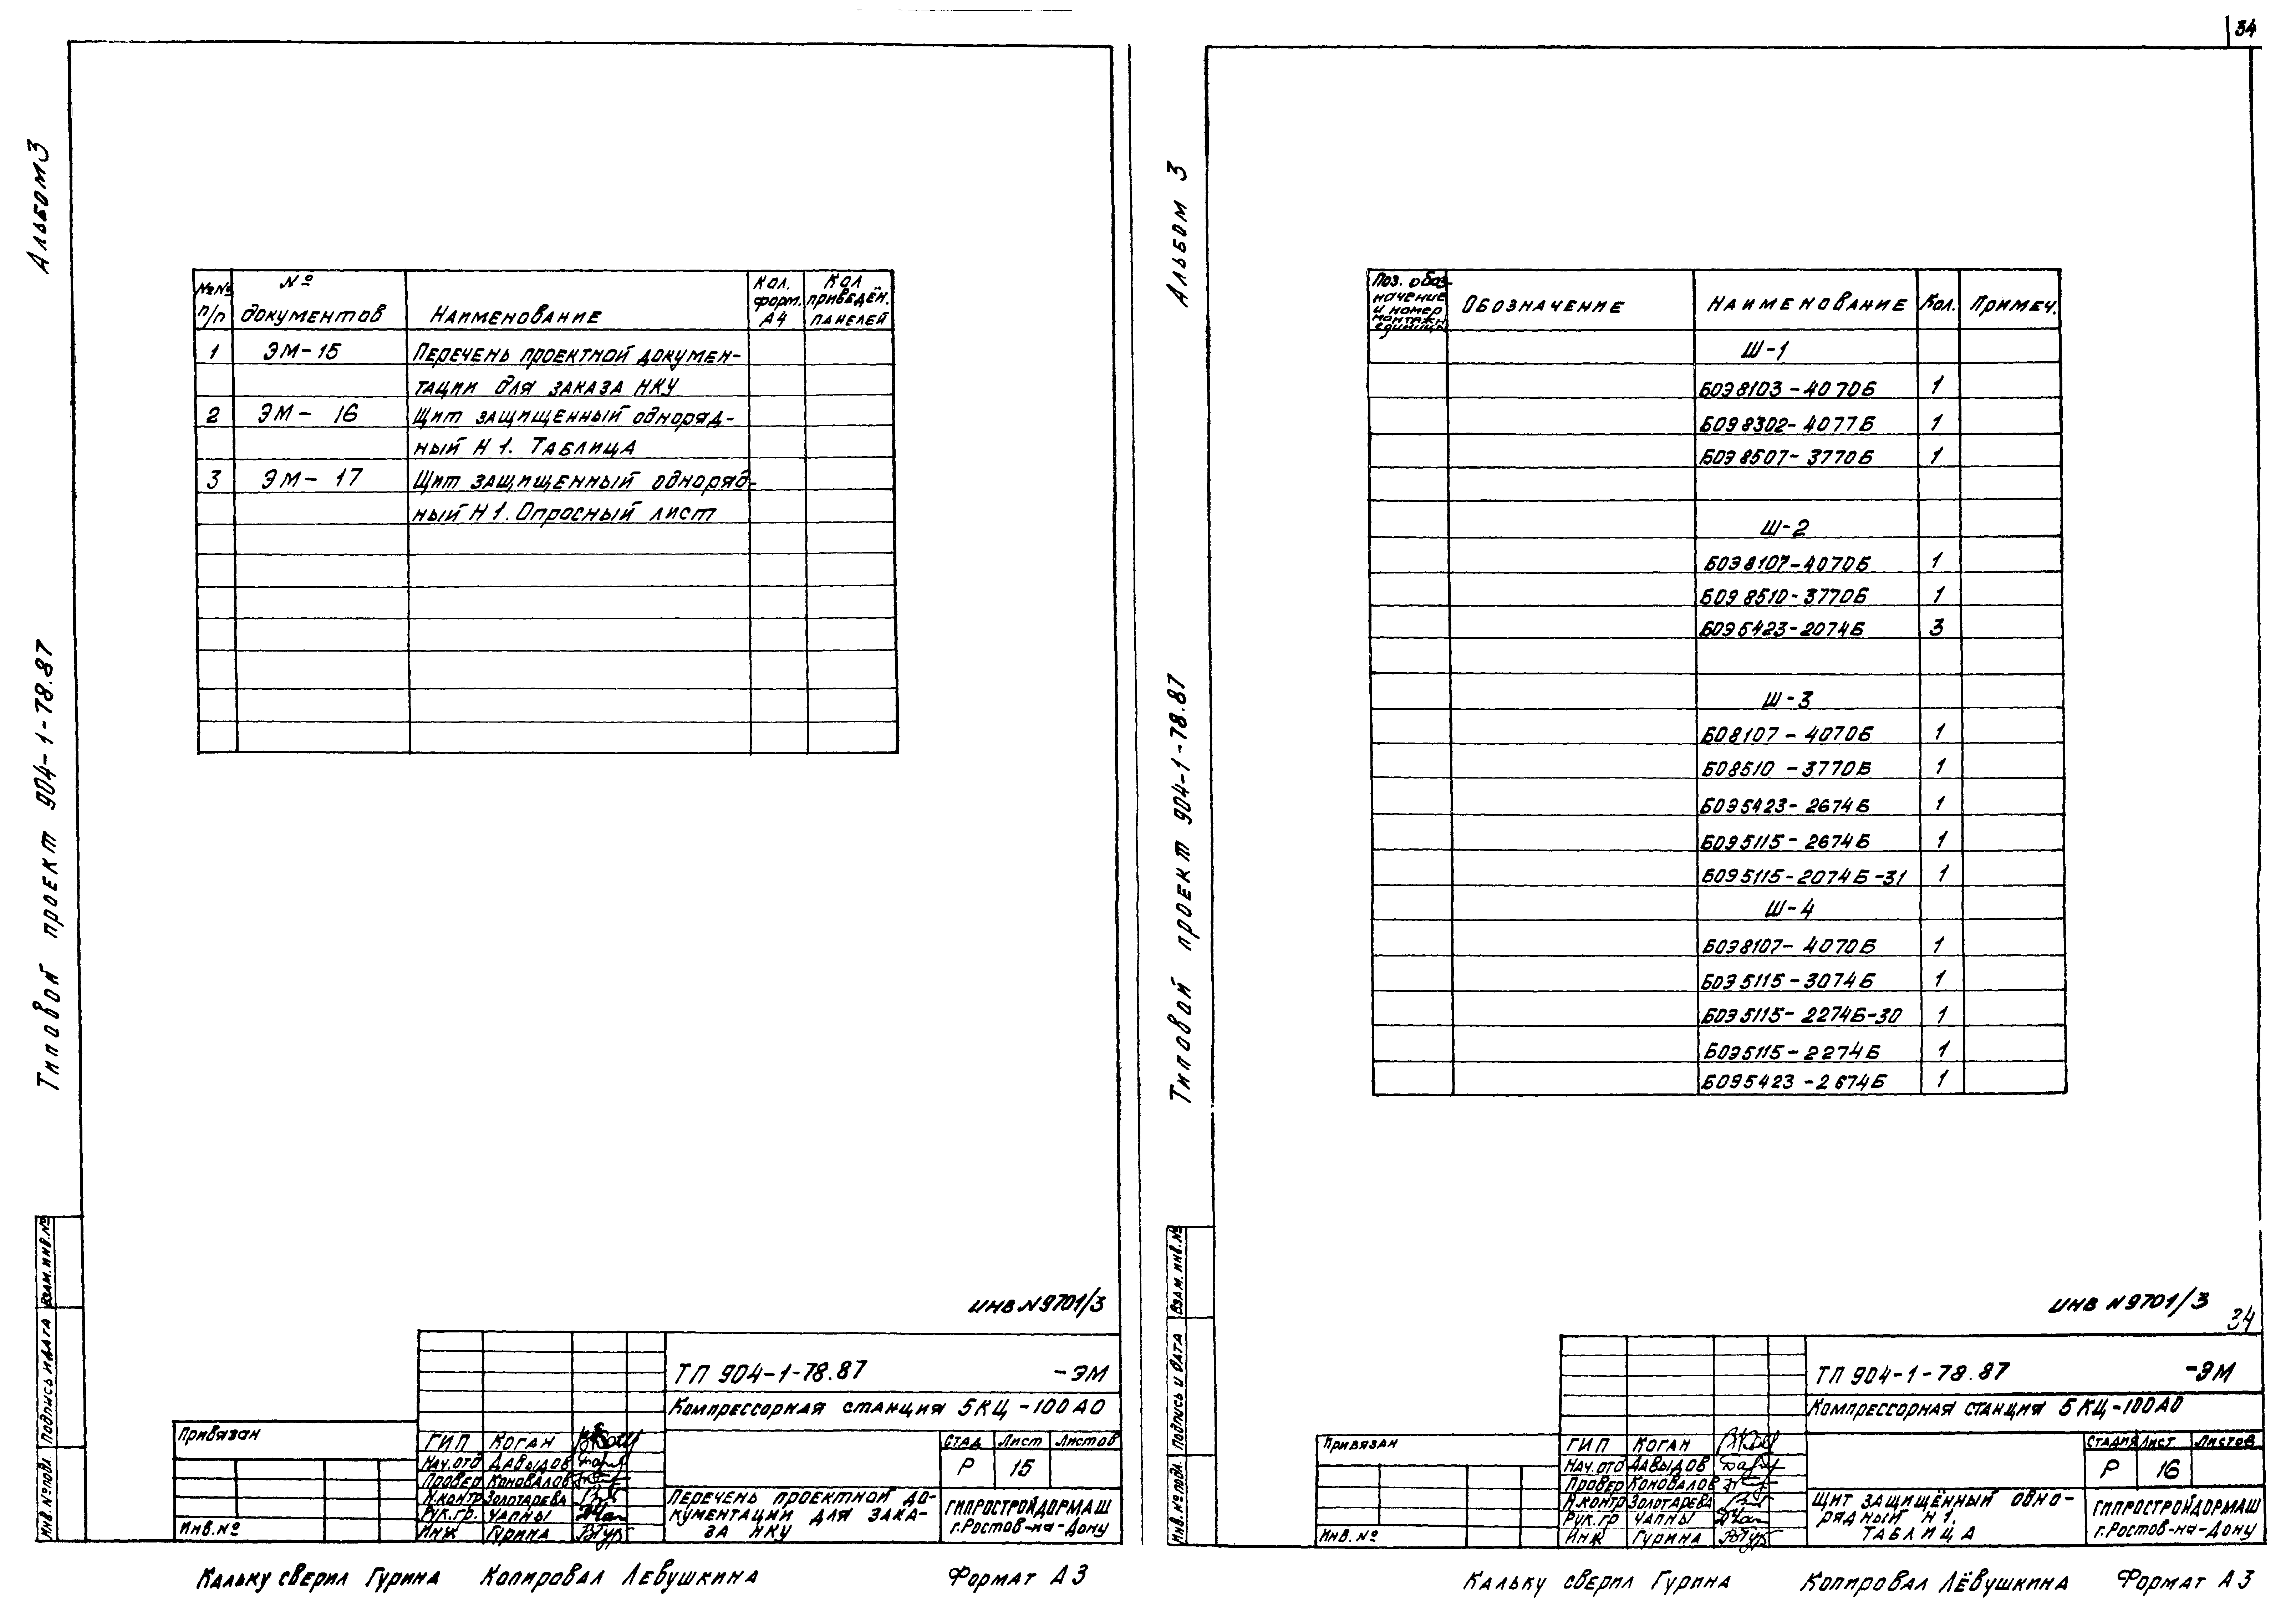 34
Альбом 3
Типовой проект 904-1-78.87
№№ п/п
№ документов
Наименование
Кол. форм. А4
Кол приведён. панелей
1 ЭМ-15 Перечень проектной докумен-
тации для заказа НКУ
2 ЭМ- 16 Щит защищенный одноряд-
ный Н 1. Таблица
3 ЭМ- 17 Щит защищенный одноряд-
ный Н 1. Опросный лист
Взам. инв. №
Подпись и дата
Инв. № подл
инв N 9701/3
ТП 904-1-78.87 -ЭМ
Компрессорная станция 5КЦ-100А0
Привязан
Инв. №
ГИП Коган
Нач. отд Давыдов
Провер Коновалов
Н.контр Золотарева
Рук.гр. Чапны
Инж Гурина
Стад Лист Листов
Р 15
Перечень проектной до-
кументации для зака-
за НКУ
ГИПРОСТРОЙДОРМАШ
г.Ростов-на-Дону
Кальку сверил Гурина Копировал Левушкина Формат А3
Альбом 3
Типовой проект 904-1-78.87
Поз. обоз-
начение
и номер
монтажн
единицы
Обозначение
Наименование
Кол.
Примеч.
Ш-1
БОЭ8103-4070Б 1
БОЭ8302-4077Б 1
БОЭ8507-3770Б 1
Ш-2
БОЭ8107-4070Б 1
БОЭ8510-3770Б 1
БОЭ5423-2074Б 3
Ш-3
БО8107-4070Б 1
БО8510-3770Б 1
БОЭ5423-2674Б 1
БОЭ5115-2674Б 1
БОЭ5115-2074Б-31 1
Ш-4
БОЭ8107-4070Б 1
БОЭ5115-3074Б 1
БОЭ5115-2274Б-30 1
БОЭ5115-2274Б 1
БОЭ5423-2674Б 1
Взам. инв. №
Подпись и дата
Инв. № подл.
инв N 9701/3
34
ТП 904-1-78.87 -ЭМ
Компрессорная станция 5КЦ-100А0
Привязан
Инв. №
ГИП Коган
Нач.отд Давыдов
Провер Коновалов
Н.контр Золотарева
Рук.гр Чапны
Инж Гурина
Стадия Лист Листов
Р 16
Щит защищённый одно-
рядный Н 1.
Таблица
ГИПРОСТРОЙДОРМАШ
г.Ростов-на-Дону
Кальку сверил Гурина Копировал Лёвушкина Формат А3